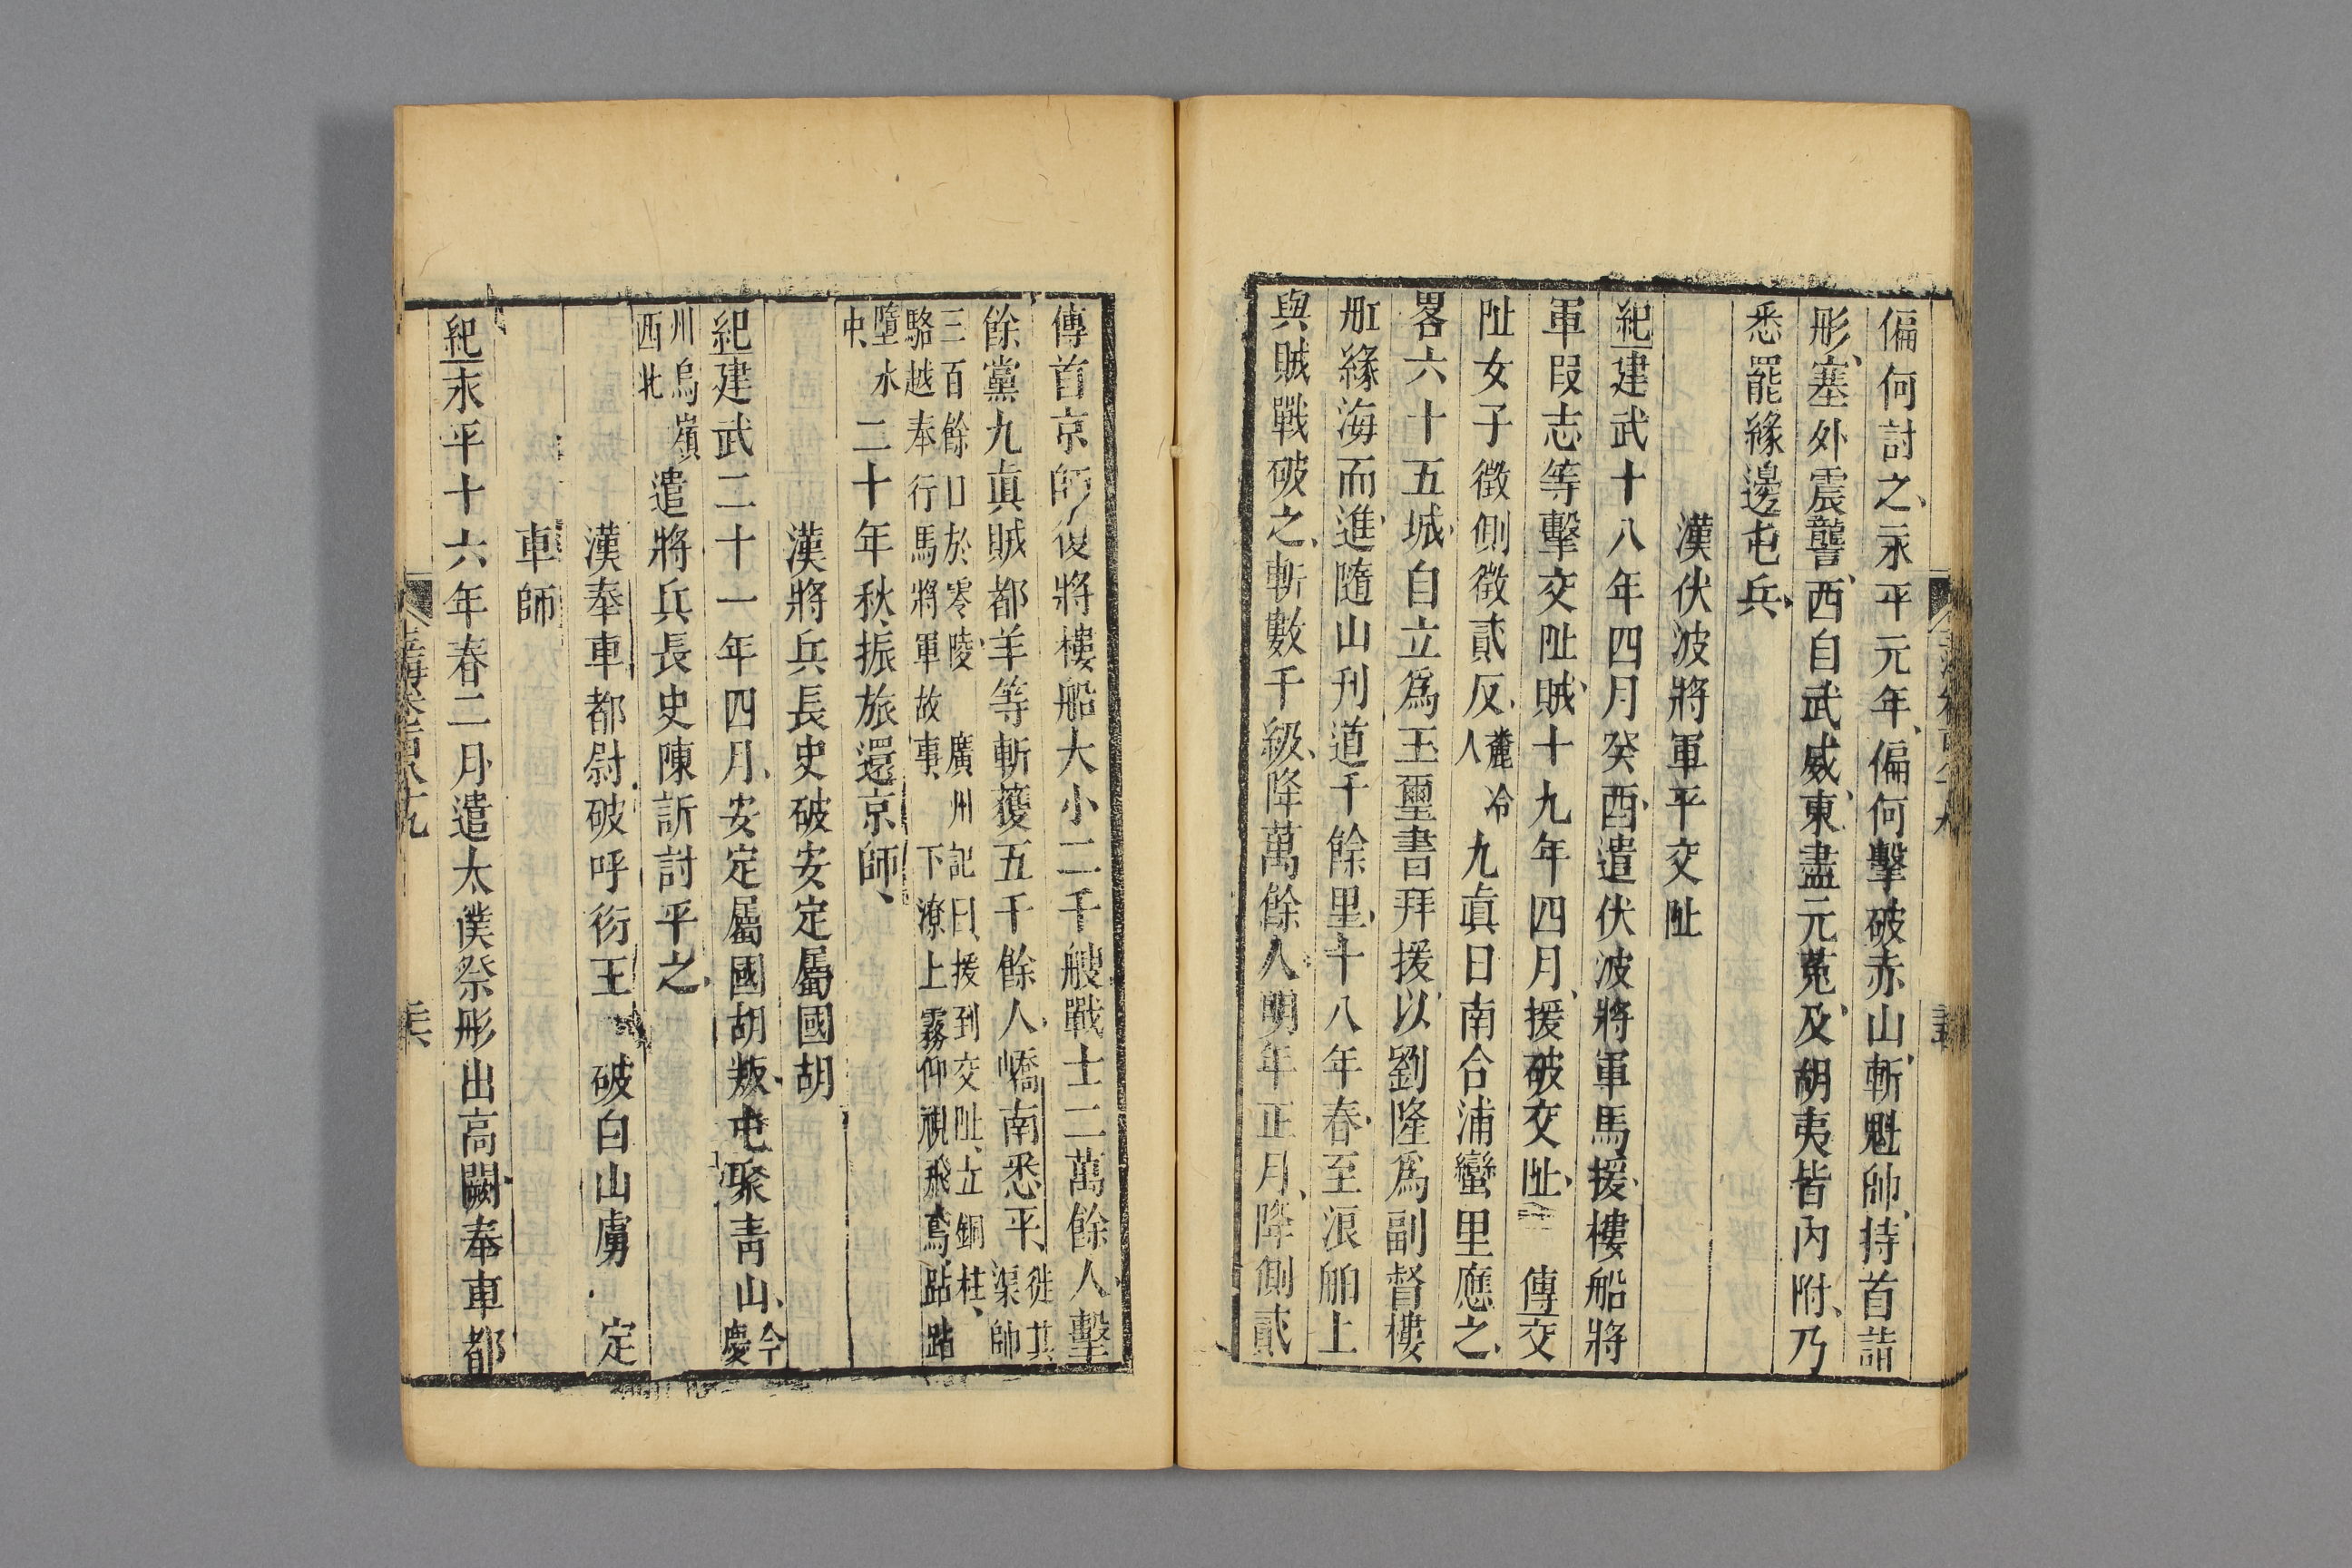 偏何討之永平元年偏何擊破赤山斬魁帥持首詣
肜塞外震讋西自武威東盡元菟及胡夷皆內附乃
悉罷緣邊屯兵
漢伏波將軍平交阯
紀建武十八年四月癸酉遣伏波將軍馬援樓船將
軍段志等擊交阯賊十九年四月援破交阯 傳交
阯女子徵側徵貳反麊泠人九眞日南合浦蠻里應之
畧六十五城自立爲王璽書拜援以劉隆爲副督樓
舡緣海而進隨山刋道千餘里十八年春至浪舶上
與賊戰破之斬數千級降萬餘人明年正月降側貳
傳首京師復將樓船大小二千艘戰士二萬餘人擊
餘黨九眞賊都羊等斬獲五千餘人嶠南悉平徙其渠帥
三百餘口於零陵 廣州記曰援到交阯立銅柱
駱越奉行馬將軍故事 下潦上霧仰視飛鳶跕跕
墮水中二十年秋振旅還京師
漢將兵長史破安定屬國胡
紀建武二十一年四月安定屬國胡叛屯聚靑山今慶
州烏嶺西北遣將兵長史陳訢討平之
漢奉車都尉破呼衍王 破白山虜 定
車師
紀永平十六年春二月遣太僕祭肜出高闕奉車都